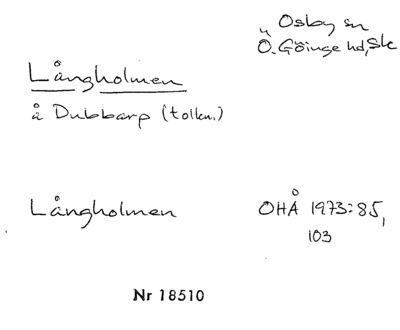 Osby sn
Ö. Göinge hd, Sk
Långholmen
å Dubbarp (tolkn.)
Långholmen
OHÅ 1973:85,
103
Nr 18510